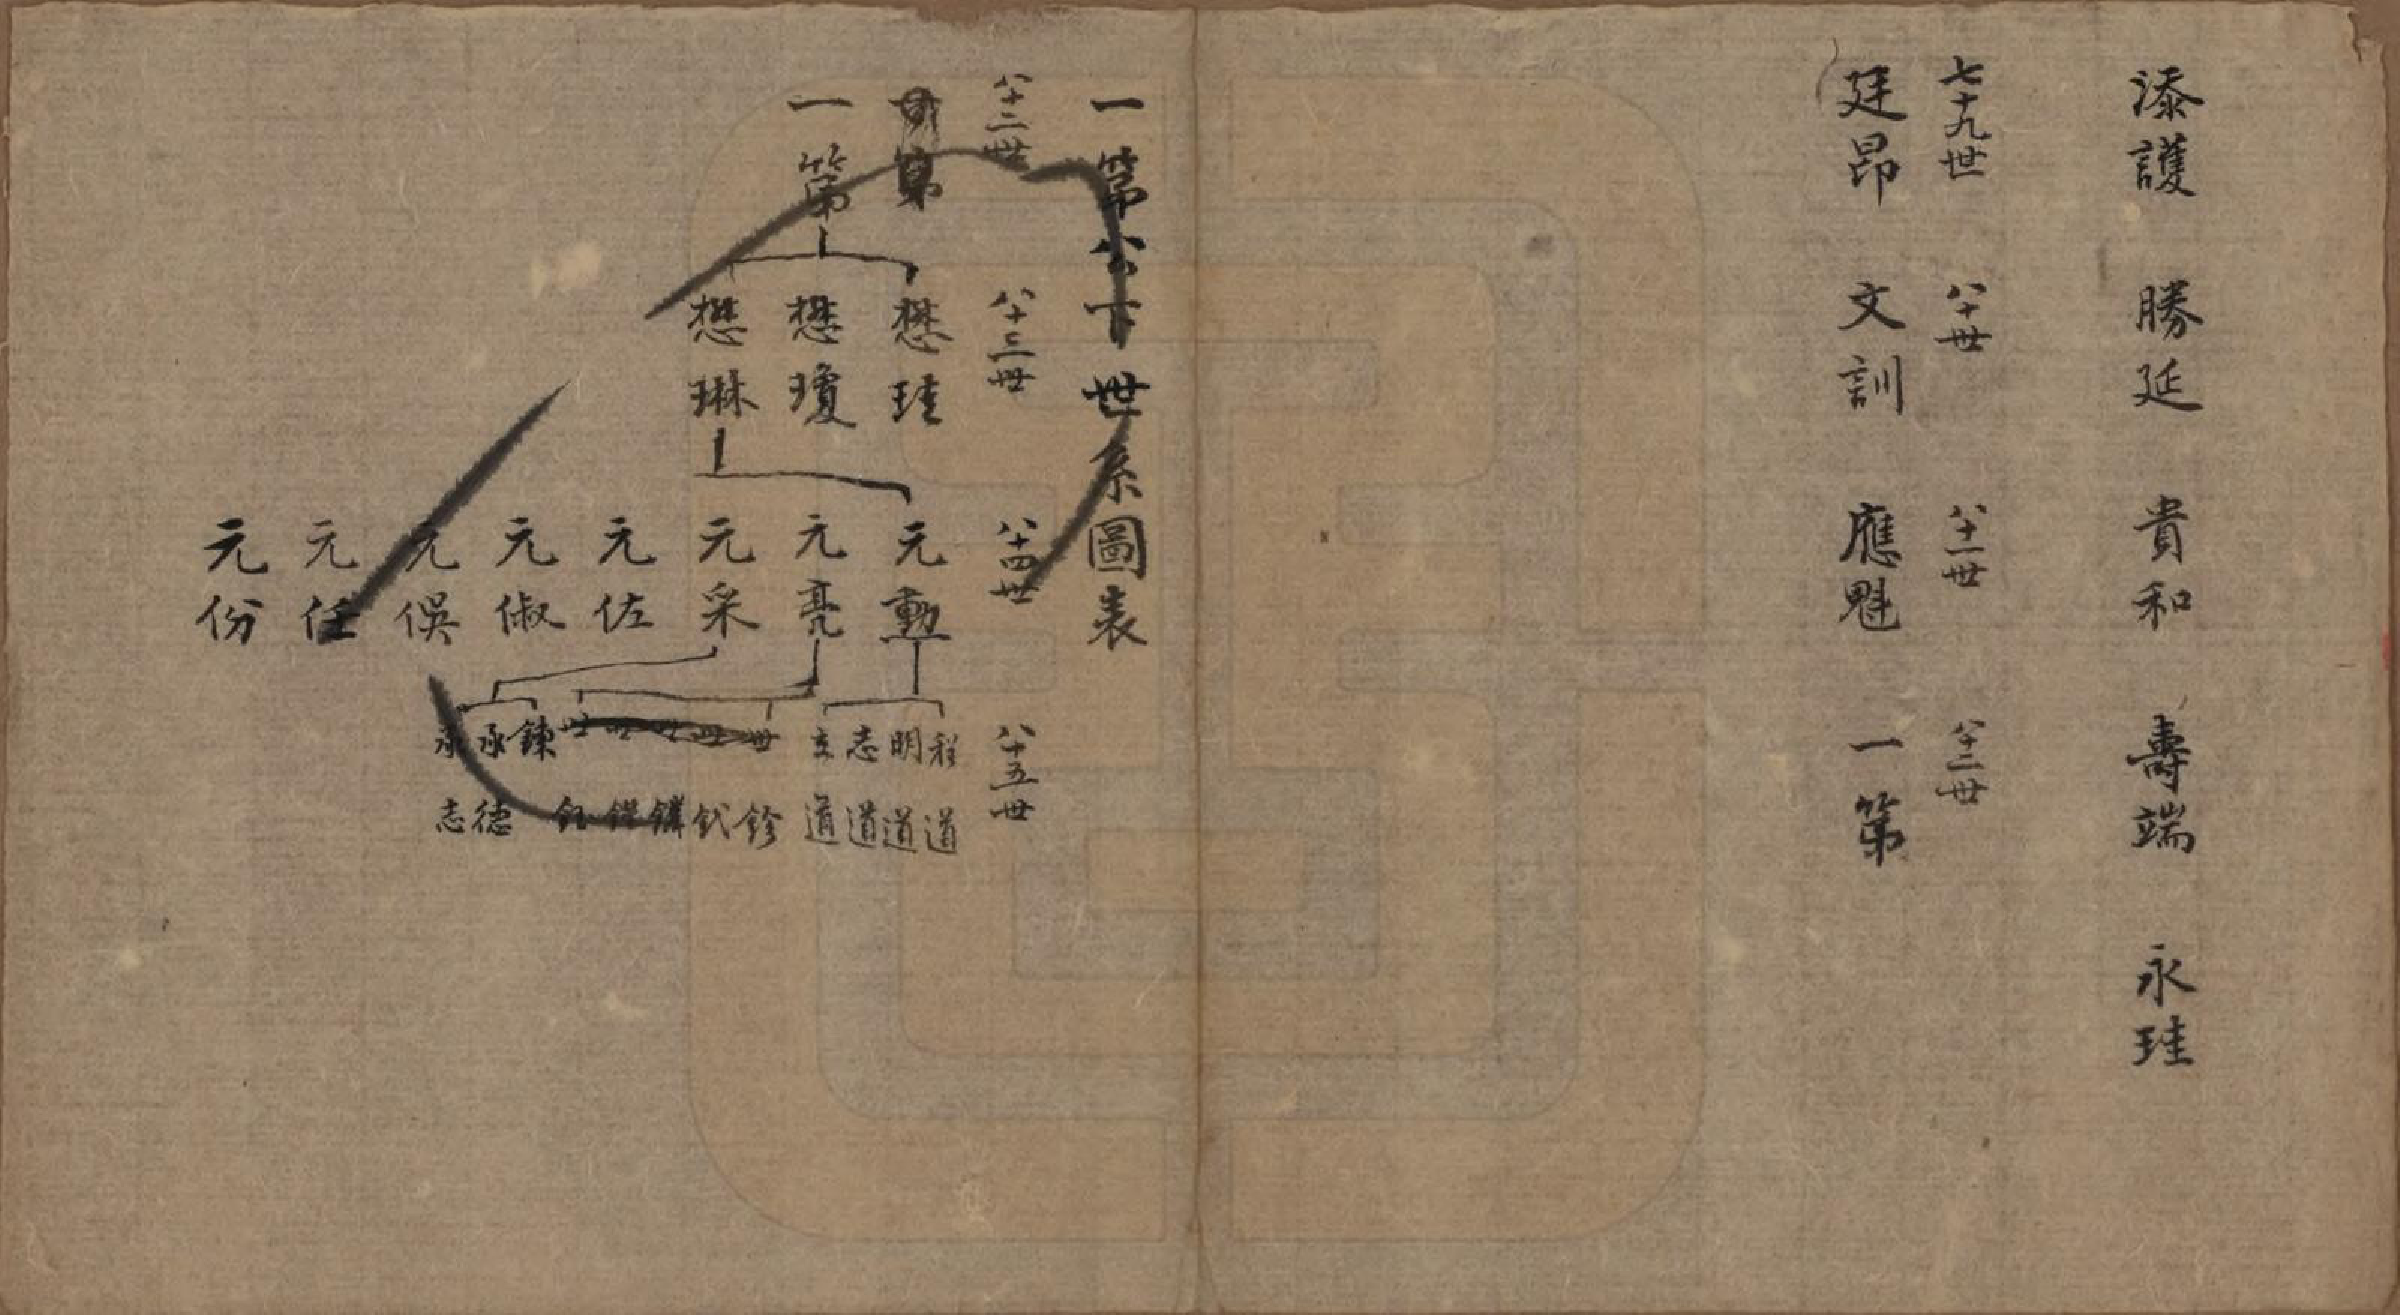 添護 勝延 貴和 壽端 永珪
七十九世 八十世 八十一世 八十二世
廷昂 文訓 應魁 一第
一第公下世系圖表
八十二世 八十三世 八十四世 八十五世
第
一第
懋珪 懋瓊 懋琳
元勳 元亮 元采 元佐 元俶 元俣 元任 元份
程道 明道 志道 立道
世鉁 世釴 世鏻 世 世鈺
錬 承德 承志